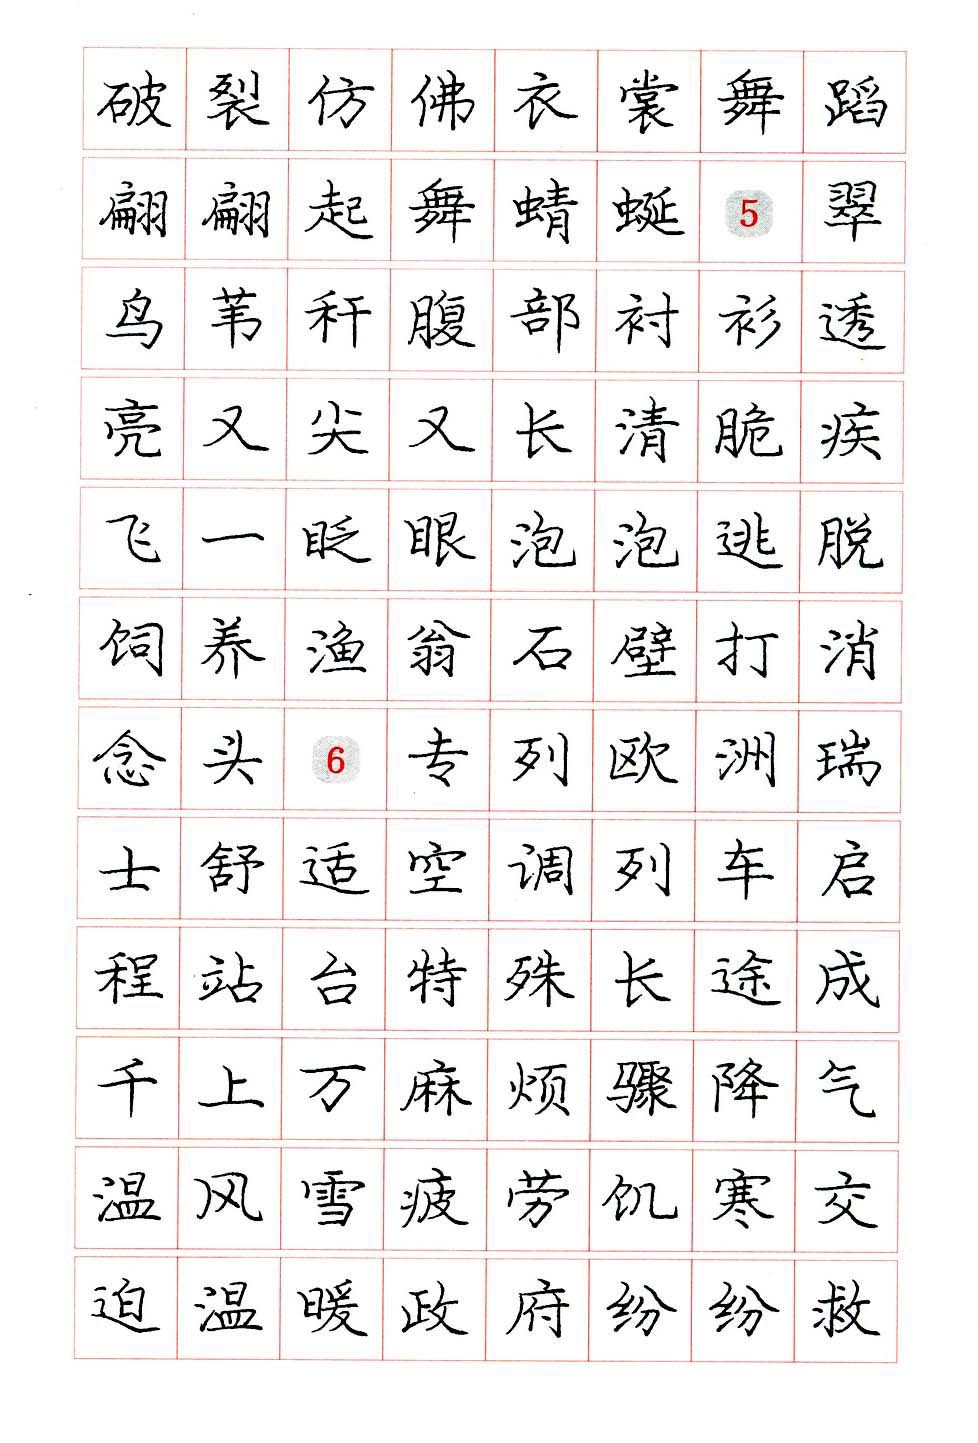 破裂仿佛衣裳舞蹈
翩翩起舞蜻蜓5翠
鸟苇秆腹部衬衫透
亮又尖又长清脆疾
飞一眨眼泡泡逃脱
饲养渔翁石壁打消
念头6专列欧洲瑞
士舒适空调列车启
程站台特殊长途成
千上万麻烦骤降气
温风雪疲劳饥寒交
迫温暖政府纷纷救